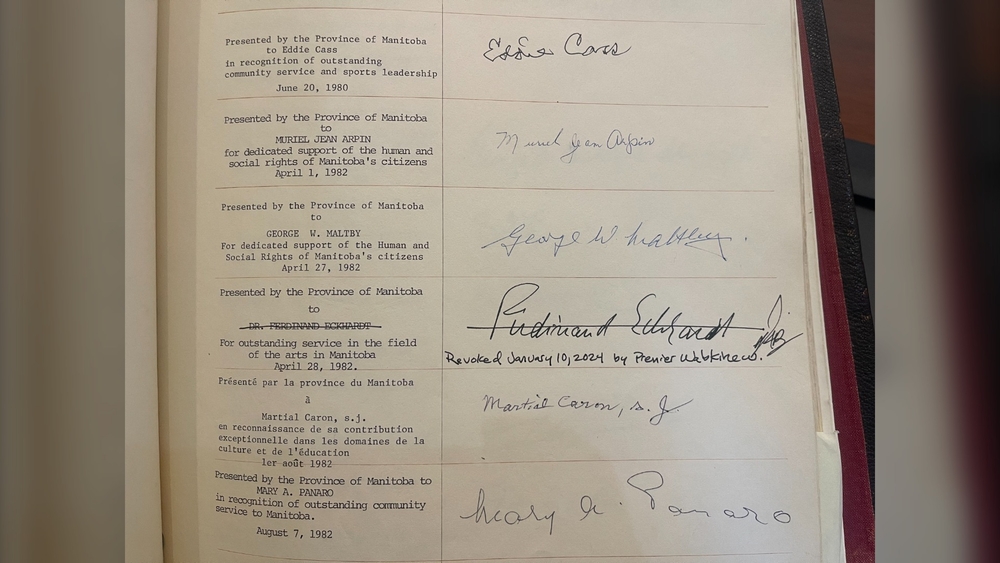 Presented by the Province of Manitoba
to Eddie Cass
in recognition of outstanding
community service and sports leadership
June 20, 1980
Eddie Cass
Presented by the Province of Manitoba
to
MURIEL JEAN ARPIN
for dedicated support of the human and
social rights of Manitoba's citizens
April 1, 1982
Muriel Jean Arpin
Presented by the Province of Manitoba
to
GEORGE W. MALTBY
For dedicated support of the Human and
Social Rights of Manitoba's citizens
April 27, 1982
George W. Maltby.
Presented by the Province of Manitoba
to
DR. FERDINAND ECKHARDT
For outstanding service in the field
of the arts in Manitoba
April 28, 1982.
Ferdinand Eckhardt
Revoked January 10, 2024 by Premier Wab Kinew.
Présenté par la province du Manitoba
à
Martial Caron, s.j.
en reconnaissance de sa contribution
exceptionnelle dans les domaines de la
culture et de l'éducation
1er août 1982
Martial Caron, s.j.
Presented by the Province of Manitoba to
MARY A. PANARO
in recognition of outstanding community
service to Manitoba.
August 7, 1982
Mary A. Panaro